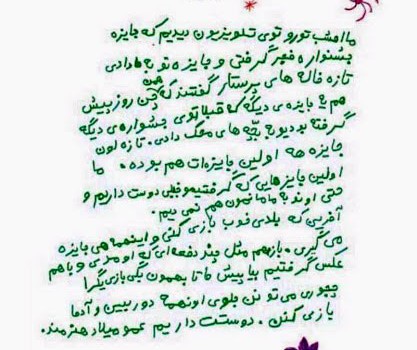 ما امشب تورو توی تلویزیون دیدیم که جایزه
جشنواره فجر گرفتی و جایزه تو به ما دادی
تازه خاله های پرستار گفتند که چن روز پیش
هم یه جایزه ی دیگه که قبلا توی جشنواره ی دیگه
گرفته بودیو به بچه های محک دادی. تازه اون
جایزه هه اولین جایزه ات هم بوده. ما
اولین جایزهایی که گرفتیمو خیلی دوست داریم و
حتی اونو به مامانمون هم نمی دیم.
آفرین که بلدی خوب بازی کنی و اینهمه هی جایزه
می گیری. بازهم مثل چند دفعه ای که اومدی و باهم
عکس گرفتیم بیا پیش ما تا بهمون بگی بازیگرا
چجوری می تونن جلوی اونهمه دوربین و آدما
بازی کنن. دوستت داریم عمو میلاد هنرمند.